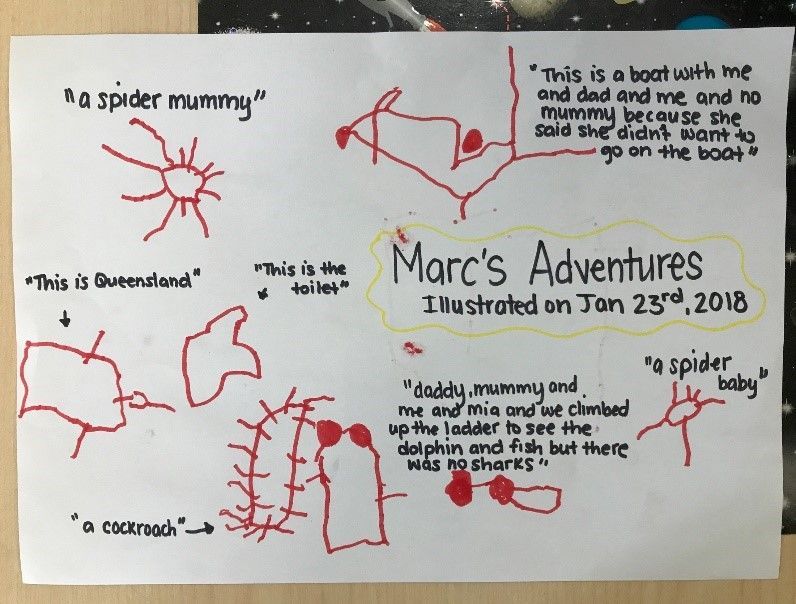 "a spider mummy"
"This is a boat with me
and dad and me and no
mummy because she
said she didn't want to
go on the boat"
Marc's Adventures
Illustrated on Jan 23rd, 2018
"This is Queensland"
"This is the
toilet"
"a spider
baby"
"daddy, mummy and
me and mia and we climbed
up the ladder to see the
dolphin and fish but there
was no sharks"
"a cockroach"